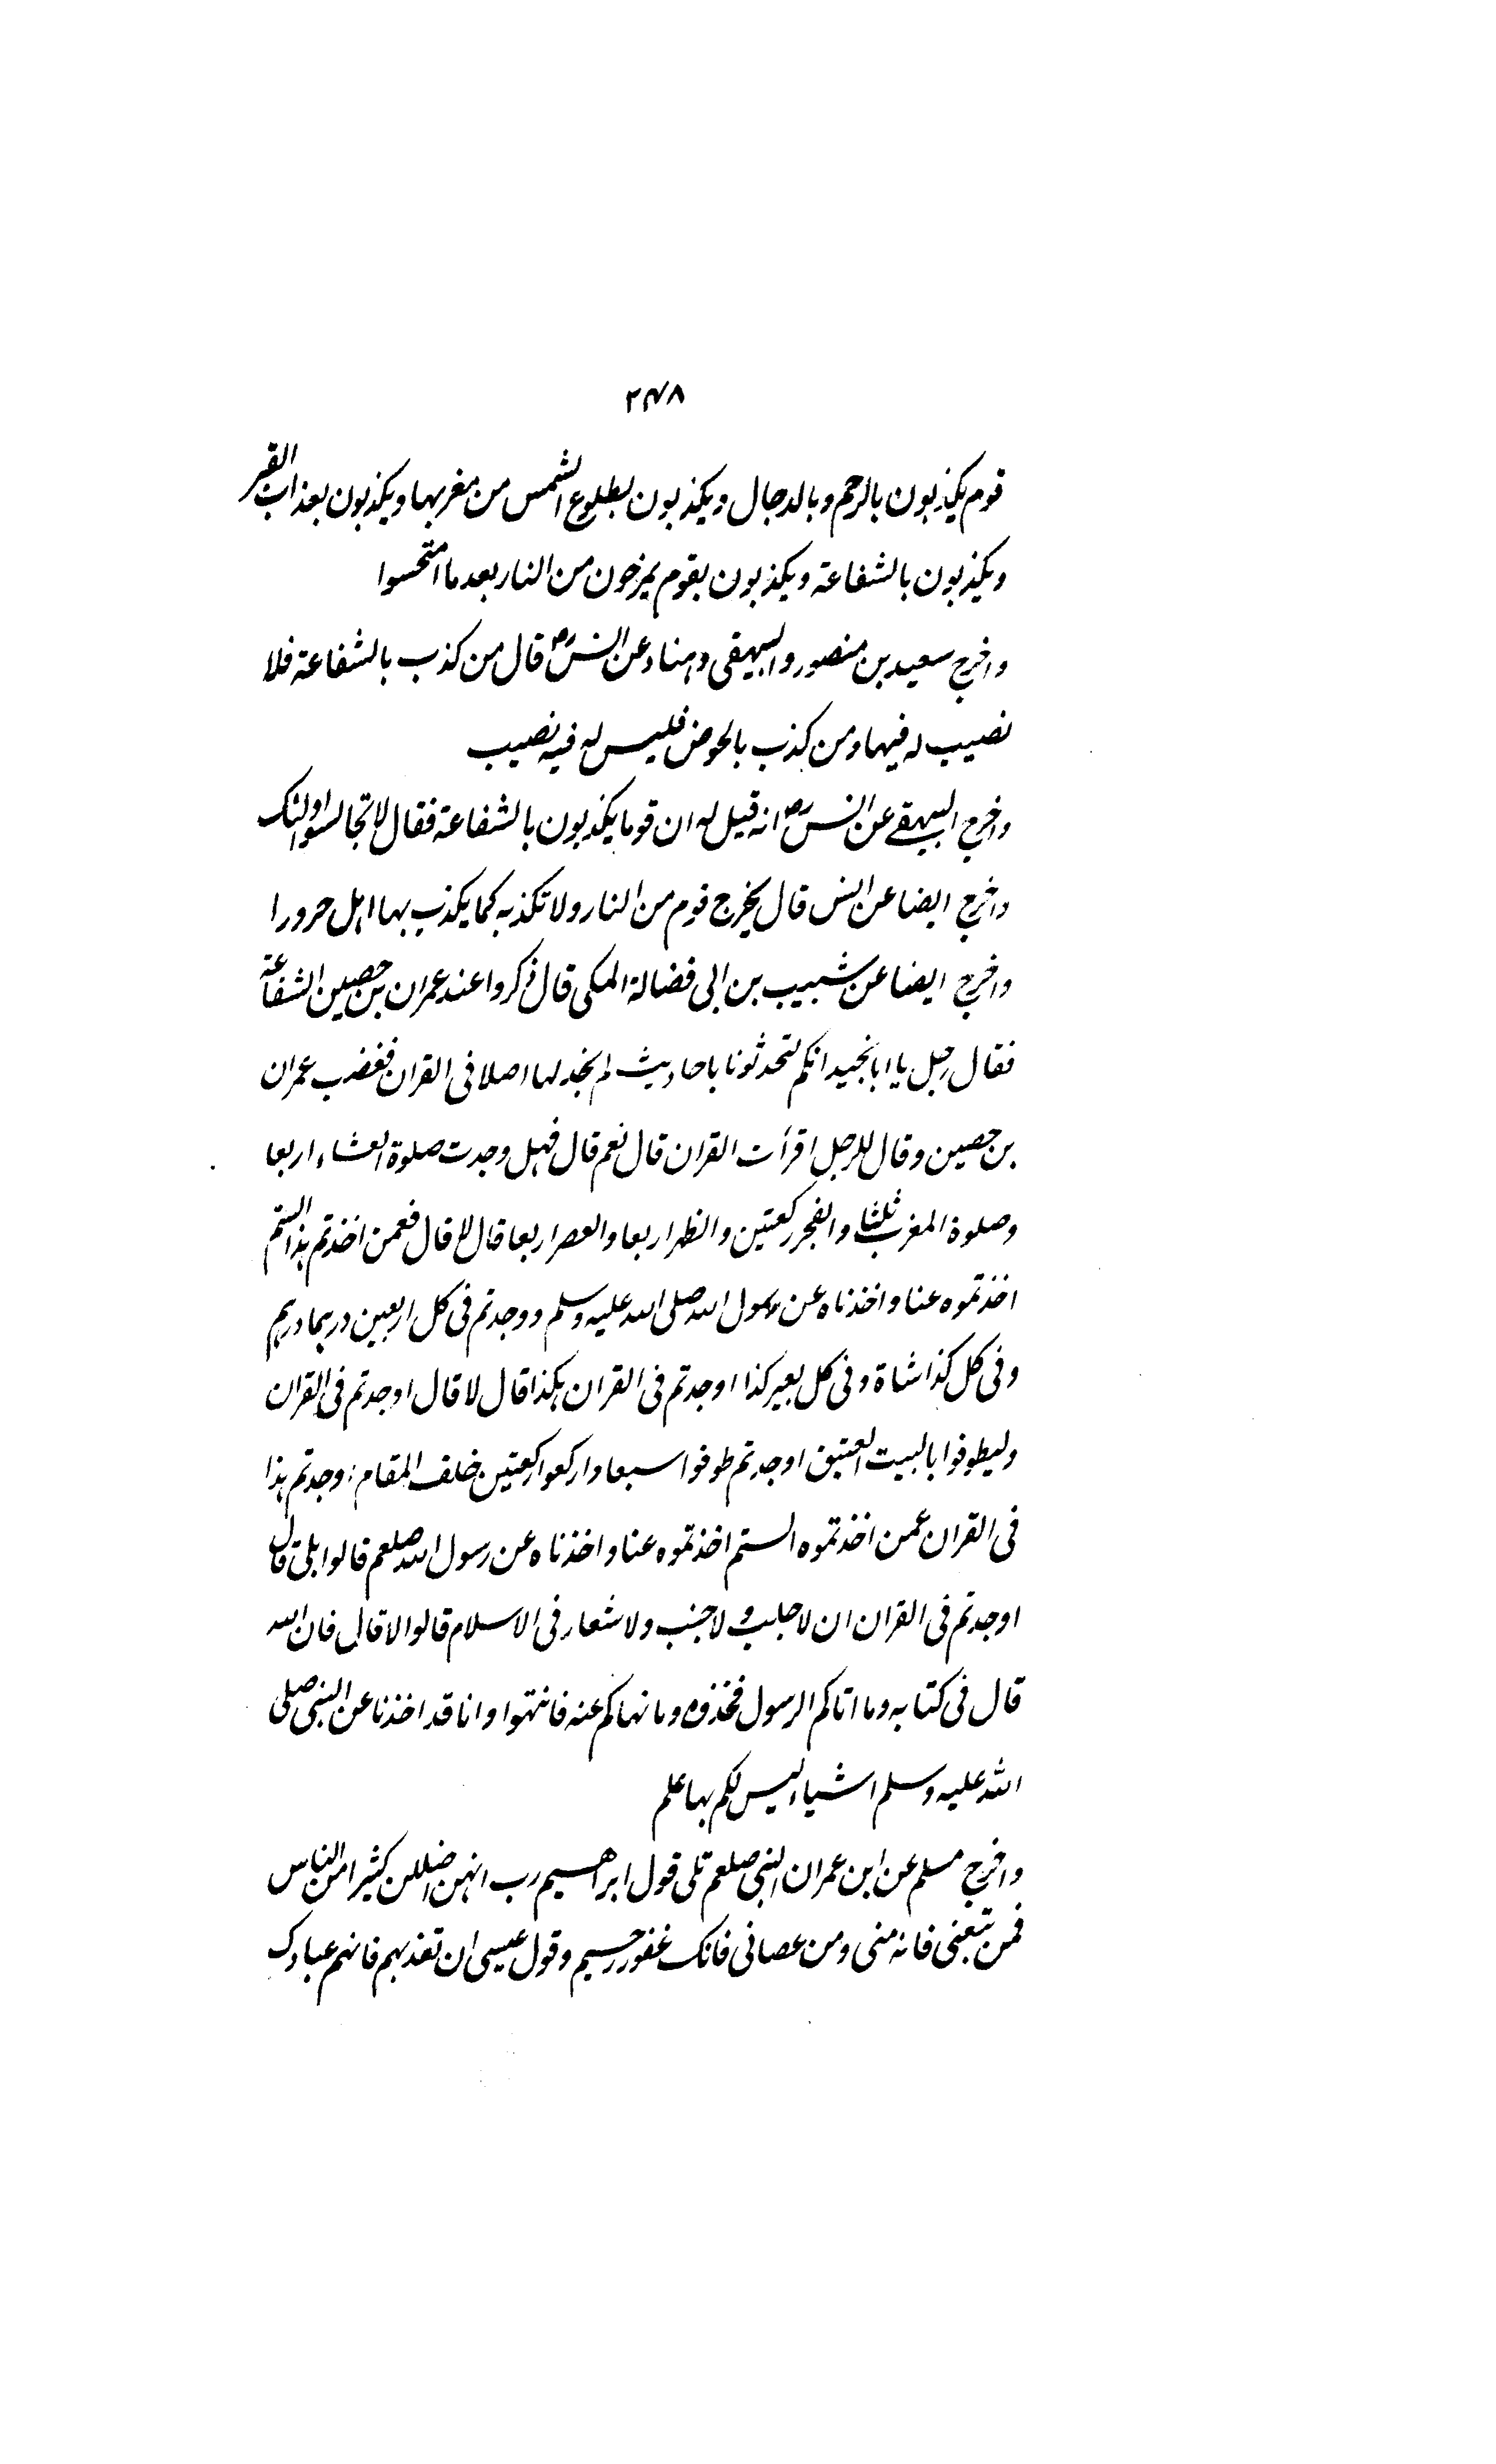 ۲۴۸
قوم يكذبون بالرجم وبالدجال ويكذبون بطلوع الشمس من مغربها ويكذبون بعذاب القبر
ويكذبون بالشفاعة ويكذبون بقوم يخرجون من النار بعد ما امتحسوا
واخرج سعيد بن منصور والبيهقى وهناد عن انسؓ قال من كذب بالشفاعة فلا
نصيب له فيها ومن كذب بالحوض فليس له فيه نصيب
واخرج البيهقے عن انسؓ انه قيل له ان قوما يكذبون بالشفاعة فقال لا تجالسوا اولئك
واخرج ايضا عن انس قال يخرج قوم من النار ولا تكذبه كما يكذب بها اهل حرورا
واخرج ايضا عن شبيب بن ابى فضالة المكى قال ذكروا عند عمران بن حصين الشفاعة
فقال رجل يا ابا نجيد انكم لتحدثونا باحاديث لم نجد لها اصلا فى القران فغضب عمران
بن حصين وقال للرجل اقرأت القران قال نعم قال فهل وجدت صلوة العشاء اربعا
وصلوة المغرب ثلثا والفجر ركعتين والظهر اربعا والعصر اربعا قال لا قال فعمن اخذتم هذا الستم
اخذتموه عنا واخذناه عن رسول الله صلى الله عليه وسلم ووجدتم فى كل اربعين درهما درهم
وفى كل كذا شاة وفى كل بعير كذا اوجدتم فى القران هكذا قال لا قال اوجدتم فى القران
وليطوفوا بالبيت العتيق اوجدتم طوفوا سبعا واركعوا ركعتين خلف المقام اوجدتم هذا
فى القران عمن اخذتموه الستم اخذتموه عنا واخذناه عن رسول الله صلعم قالوا بلى قال
اوجدتم فى القران ان لا جلب ولا جنب ولا شغار فى الاسلام قالوا لا قال فان الله
قال فى كتابه وما اتاكم الرسول فخذوه وما نهاكم عنه فانتهوا وانا قد اخذنا عن النبى صلى
الله عليه وسلم اشياء ليس لكم بها علم
واخرج مسلم عن ابن عمر ان النبى صلعم تلى قول ابراهيم رب انهن اضللن كثيرا من الناس
فمن تبعنى فانه منى ومن عصانى فانك غفور رحيم وقول عيسى ان تعذبهم فانهم عبادك